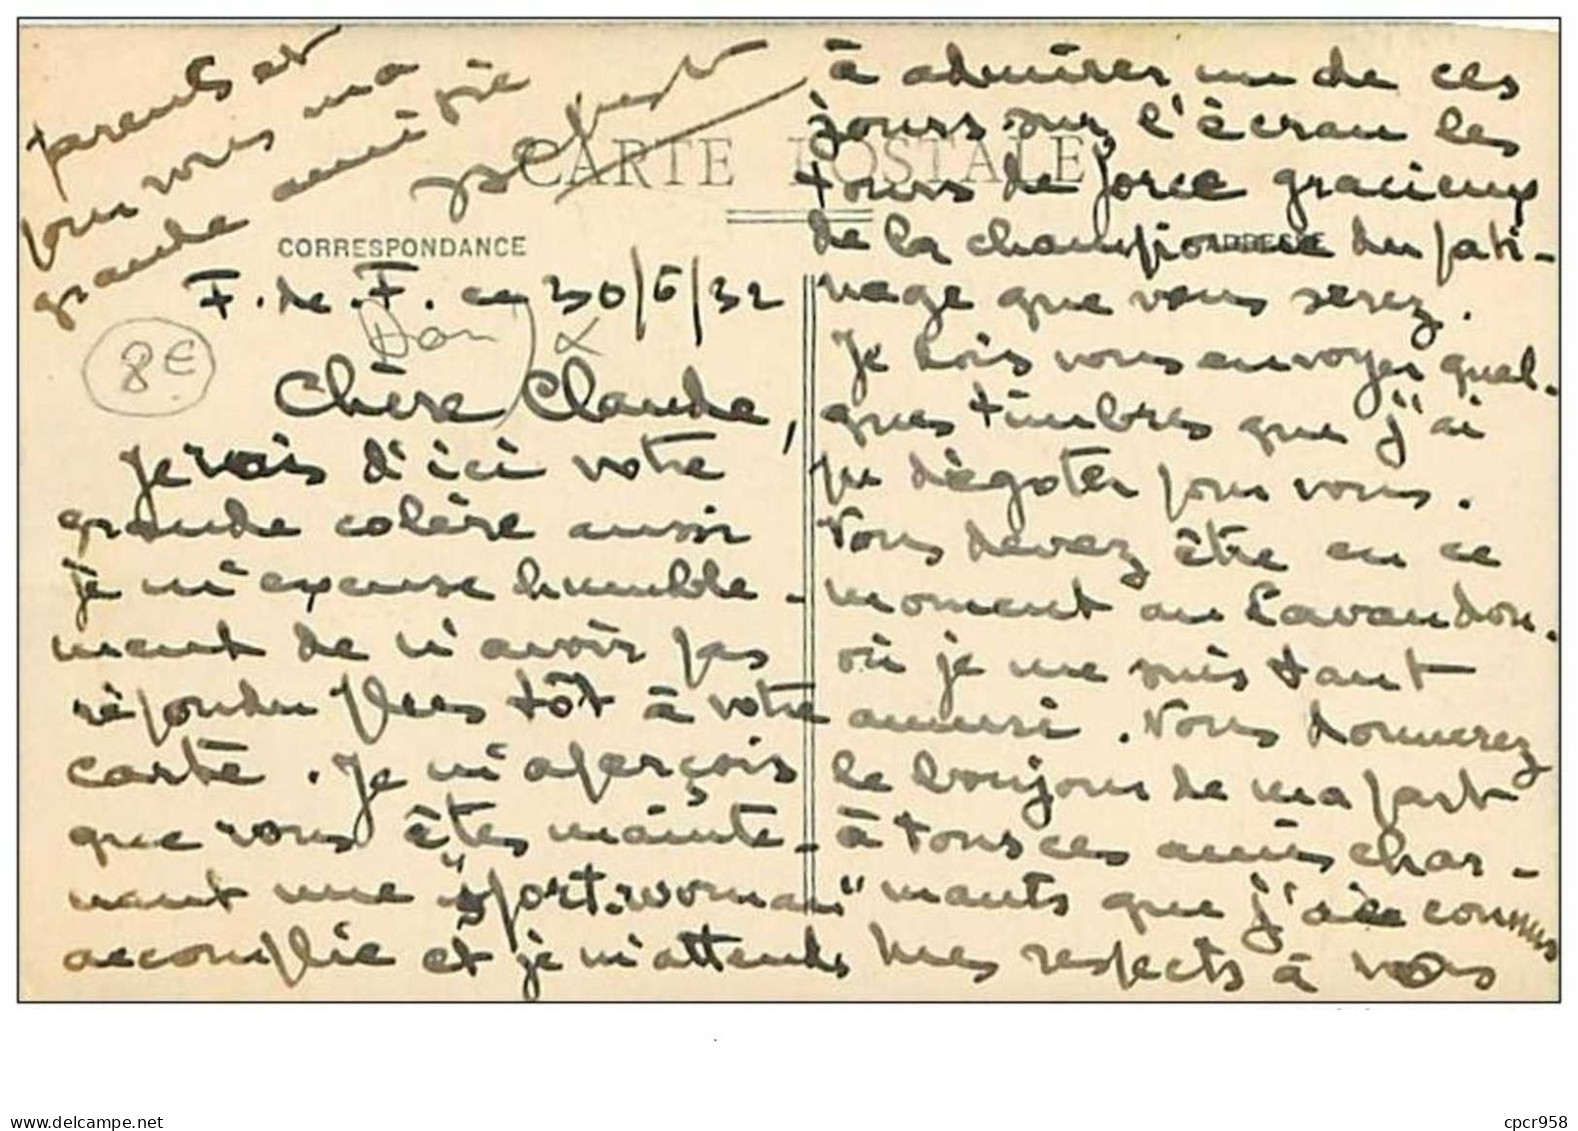 CARTE POSTALE
CORRESPONDANCE
ADRESSE
F. de F. ce 30/6/32
8€
Chère Claude,
Je vois d'ici votre
grande colère aussi
je m'excuse humble-
ment de n'avoir pas
répondu plus tôt à votre
carte. Je m'aperçois
que vous êtes mainte-
nant une "sport-woman"
accomplie et je m'attends
à admirer un de ces
jours sur l'écran les
tours de force gracieux
de la championne du pati-
nage que vous serez.
Je vois vous envoyer quel-
ques timbres que j'ai
pu dégoter pour vous.
Vous devez être en ce
moment au Lavandou.
où je me suis tant
amusé. Vous donnerez
le bonjour de ma part
à tous ces amis char-
mants que j'ai connus
mes respects à vos
parents et
pour vous ma
grande amitié